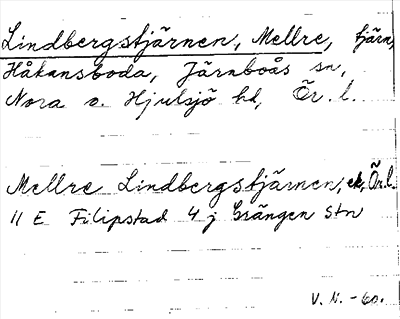 Lindbergstjärnen, Mellre, tjärn,
Håkansboda, Järnboås sn,
Nora o. Hjulsjö hd, Ör. l.
Mellre Lindbergstjärnen, ek, Ör. l.
11 E Filipstad 4 j Grängen stn
V. N. - 60.